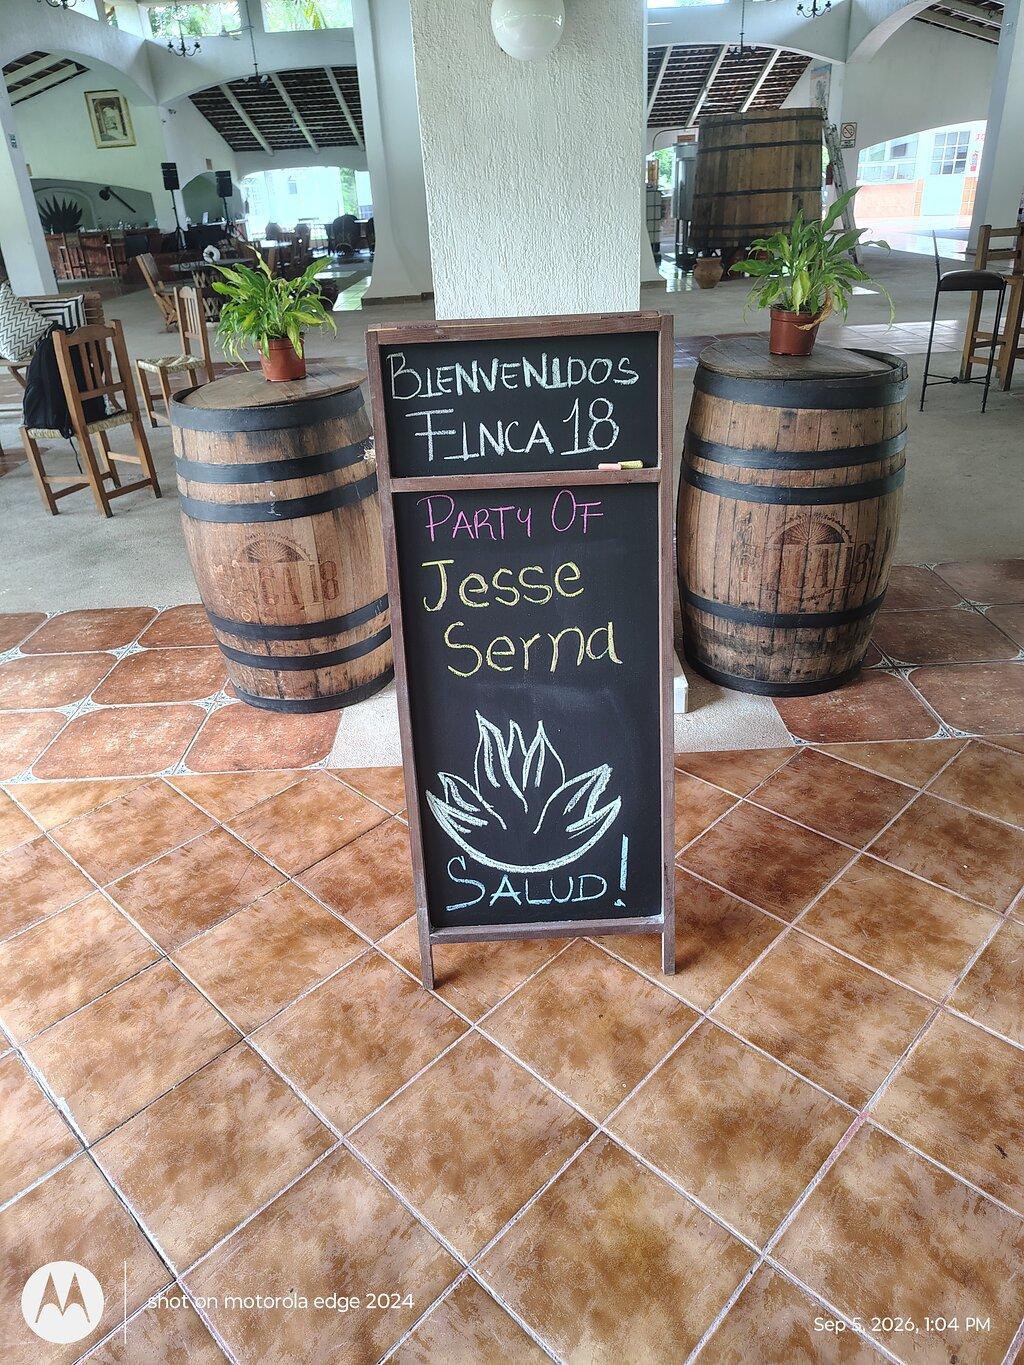 BIENVENIDOS
FINCA 18
PARTY OF
Jesse
Serna
SALUD!
FINCA 18
shot on motorola edge 2024
Sep 5, 2026, 1:04 PM